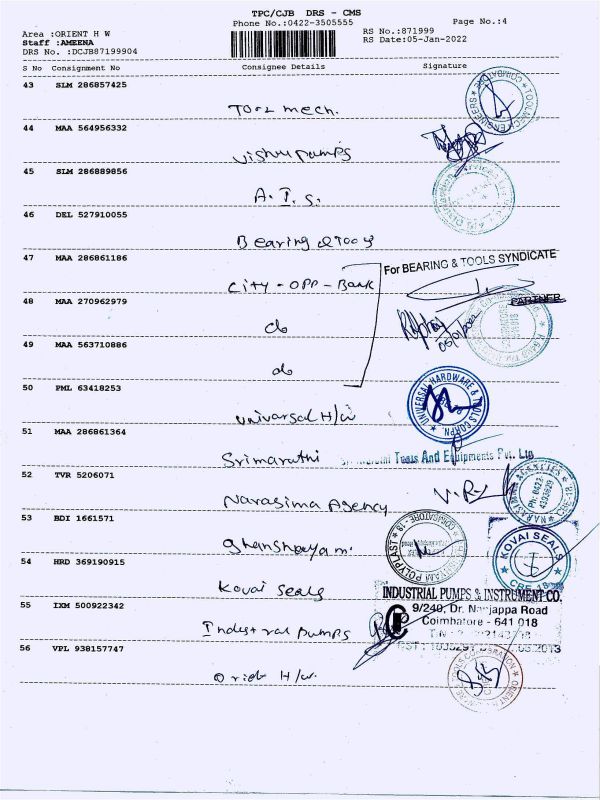 TPC/CJB DRS - CMS
Phone No.:0422-3505555
Page No.:4
Area :ORIENT H W
RS No.:871999
Staff :AMEENA
RS Date:05-Jan-2022
DRS No. :DCJB87199904
S No Consignment No Consignee Details Signature
43 SLM 286857425
Torz mech.
44 MAA 564956332
Vishu pumps
45 SLM 286889856
A. I. S.
46 DEL 527910055
Bearing & Tools
47 MAA 286861186
City - OPP - Bank
For BEARING & TOOLS SYNDICATE
PARTNER
48 MAA 270962979
do
05/01/2022
49 MAA 563710886
do
50 PML 63418253
Univarsal H/w
UNIVERSAL HARDWARE & TOOLS CORPN.
51 MAA 286861364
Srimaruthi
Tools And Equipments Pvt. Ltd
52 TVR 5206071
Narasima Agency
53 BDI 1661571
Ghanshayam.
54 HRD 369190915
Kovai Seals
KOVAI SEALS
CBE - 18
55 IXM 500922342
Indestral pumps
INDUSTRIAL PUMPS & INSTRUMENT CO.
9/240, Dr. Nanjappa Road
Coimbatore - 641 018
56 VPL 938157747
Orient H/w.